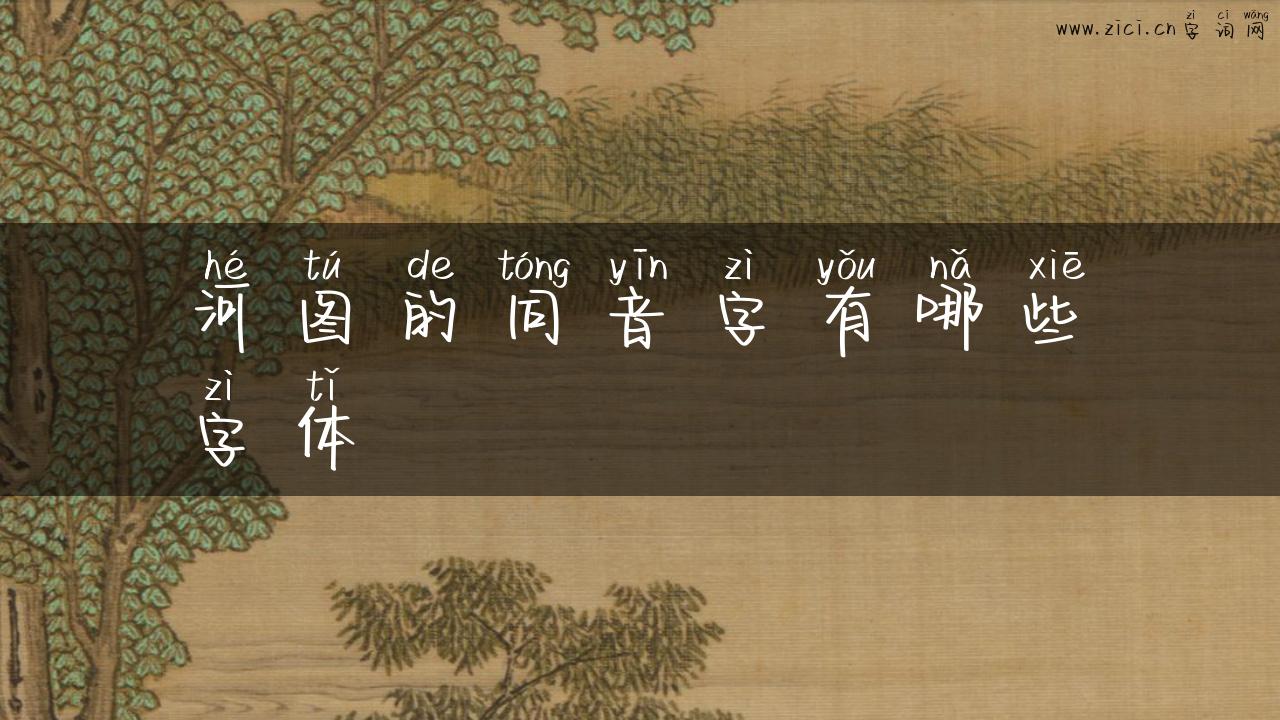 zì cí wǎng
www.zici.cn 字词网
hé tú de tóng yīn zì yǒu nǎ xiē
河图的同音字有哪些
zì tǐ
字体